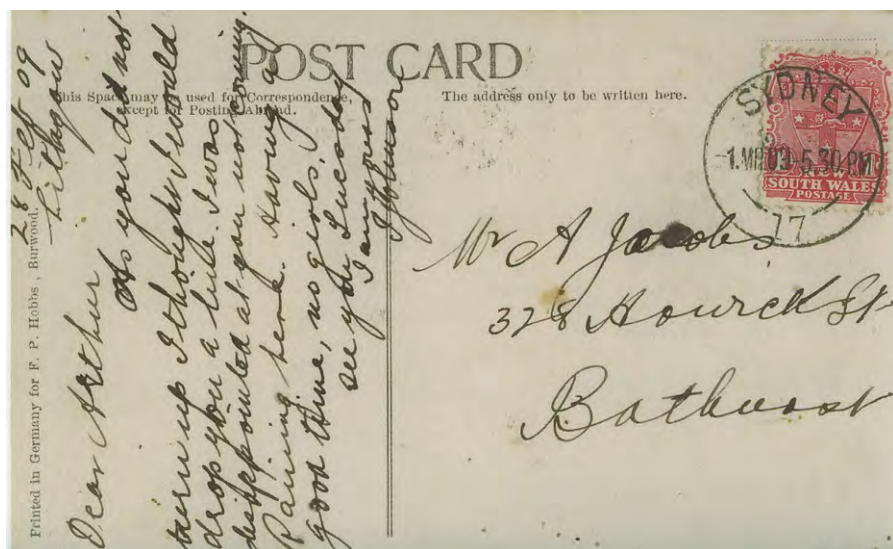 POST CARD
This Space may be used for Correspondence,
except for Posting Abroad.
The address only to be written here.
Printed in Germany for F. P. Hobbs, Burwood.
28 Feb 09
Lithgow
Dear Arthur
As you did not
turn up I thought I would
drop you a line. I was
disappointed at you not coming.
Raining here. Having a
good time, no girls.
see you Tuesday
I am yours
Johnson
Mr A Jacobs
328 Howick St
Bathurst
SYDNEY
-1.MR.09-5.30.PM
17
SOUTH WALES
POSTAGE